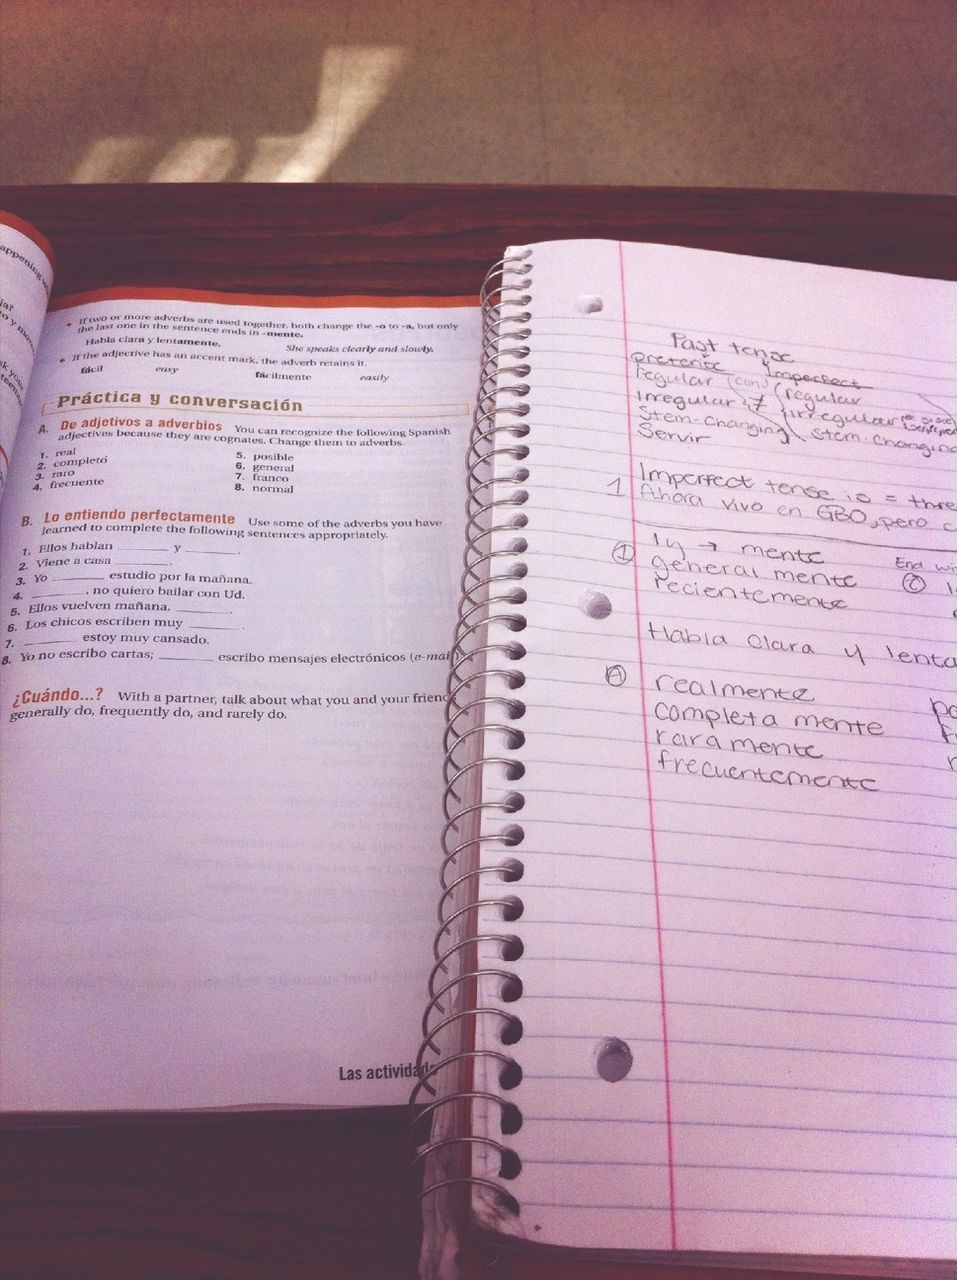 appening
ja?
o y mo
• If two or more adverbs are used together, both change the -o to -a, but only
the last one in the sentence ends in -mente.
Habla clara y lentamente. She speaks clearly and slowly.
• If the adjective has an accent mark, the adverb retains it.
fácil easy fácilmente easily
Práctica y conversación
A. De adjetivos a adverbios You can recognize the following Spanish
adjectives because they are cognates. Change them to adverbs.
1. real 5. posible
2. completo 6. general
3. raro 7. franco
4. frecuente 8. normal
B. Lo entiendo perfectamente Use some of the adverbs you have
learned to complete the following sentences appropriately.
1. Ellos hablan ________ y ________.
2. Viene a casa ________.
3. Yo ________ estudio por la mañana.
4. ________, no quiero bailar con Ud.
5. Ellos vuelven mañana, ________.
6. Los chicos escriben muy ________.
7. ________ estoy muy cansado.
8. Yo no escribo cartas; ________ escribo mensajes electrónicos (e-mail)
¿Cuándo...? With a partner, talk about what you and your friend
generally do, frequently do, and rarely do.
Las activida
Past tense
preterite y Imperfect
regular (con) regular
Irregular ≠ irregular
Stem-Changing Stem-Changing
Servir
Imperfect tense is = thre
1 Ahora vivo en GBO, pero c
ly → mente End wi
① general mente ②
recientemente
Habla Clara y lenta
Ⓐ realmente po
completa mente F
rara mente r
frecuentemente